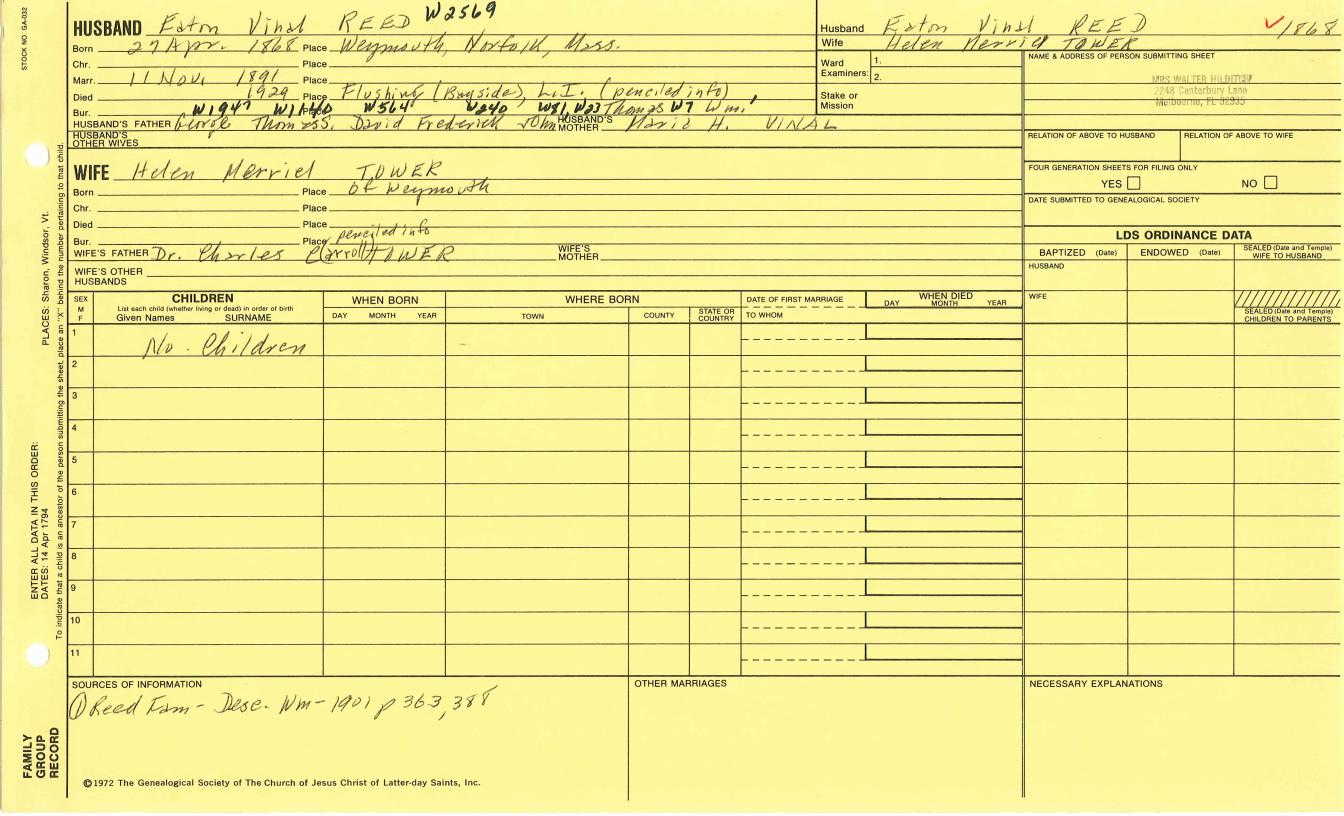 STOCK NO. GA-032
HUSBAND Eaton Vinal REED W2569
Born 27 Apr. 1868 Place Weymouth, Norfolk, Mass.
Chr. Place
Marr. 11 Nov. 1891 Place
Died 1929 Place Flushing (Bayside), L.I. (penciled info)
Bur. Place
W1947 W1140 W564 W240 W81, W23 Thomas W7 Wm.
HUSBAND'S FATHER George Thomas S. David Frederick John HUSBAND'S MOTHER Maria H. VINAL
HUSBAND'S OTHER WIVES
WIFE Helen Merriel TOWER
Born Place of Weymouth
Chr. Place
Died Place
Bur. Place penciled info
WIFE'S FATHER Dr. Charles C(arroll) TOWER WIFE'S MOTHER
WIFE'S OTHER HUSBANDS
Husband Eaton Vinal REED ✓1868
Wife Helen Merriel TOWER
Ward Examiners: 1.
2.
Stake or Mission
NAME & ADDRESS OF PERSON SUBMITTING SHEET
MRS WALTER
2248 Canterbury Lane
Melbourne, FL 32935
RELATION OF ABOVE TO HUSBAND RELATION OF ABOVE TO WIFE
FOUR GENERATION SHEETS FOR FILING ONLY
YES NO
DATE SUBMITTED TO GENEALOGICAL SOCIETY
LDS ORDINANCE DATA
BAPTIZED (Date) ENDOWED (Date) SEALED (Date and Temple) WIFE TO HUSBAND
HUSBAND
WIFE
SEALED (Date and Temple) CHILDREN TO PARENTS
SEX M F
CHILDREN
List each child (whether living or dead) in order of birth
Given Names SURNAME
WHEN BORN
DAY MONTH YEAR
WHERE BORN
TOWN COUNTY STATE OR COUNTRY
DATE OF FIRST MARRIAGE
TO WHOM
WHEN DIED
DAY MONTH YEAR
1 No Children
2
3
4
5
6
7
8
9
10
11
SOURCES OF INFORMATION
① Reed Fam - Desc. Wm - 1901 p 363, 388
OTHER MARRIAGES
NECESSARY EXPLANATIONS
©1972 The Genealogical Society of The Church of Jesus Christ of Latter-day Saints, Inc.
FAMILY GROUP RECORD
ENTER ALL DATA IN THIS ORDER:
DATES: 14 Apr 1794 PLACES: Sharon, Windsor, Vt.
To indicate that a child is an ancestor of the person submitting the sheet, place an "X" behind the number pertaining to that child.